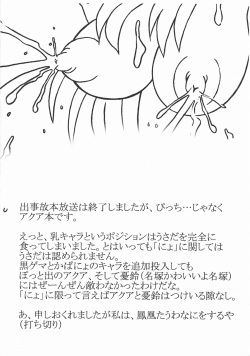 出事故本放送は終了しましたが、びっち…じゃなく
アクア本です。
えっと、乳キャラというポジションはうさだを完全に
食ってしまいました。とはいっても「にょ」に関しては
うさだは認められません。
黒ゲマとかぱにょのキャラを追加投入しても
ぽっと出のアクア、そして憂鈴（名塚かわいいよ名塚）
にはぜーんぜん敵わなかったわけだな。
「にょ」に限って言えばアクアと憂鈴はつけいる隙なし。
あ、申しおくれましたが私は、鳳凰たうわなにをするや
（打ち切り）